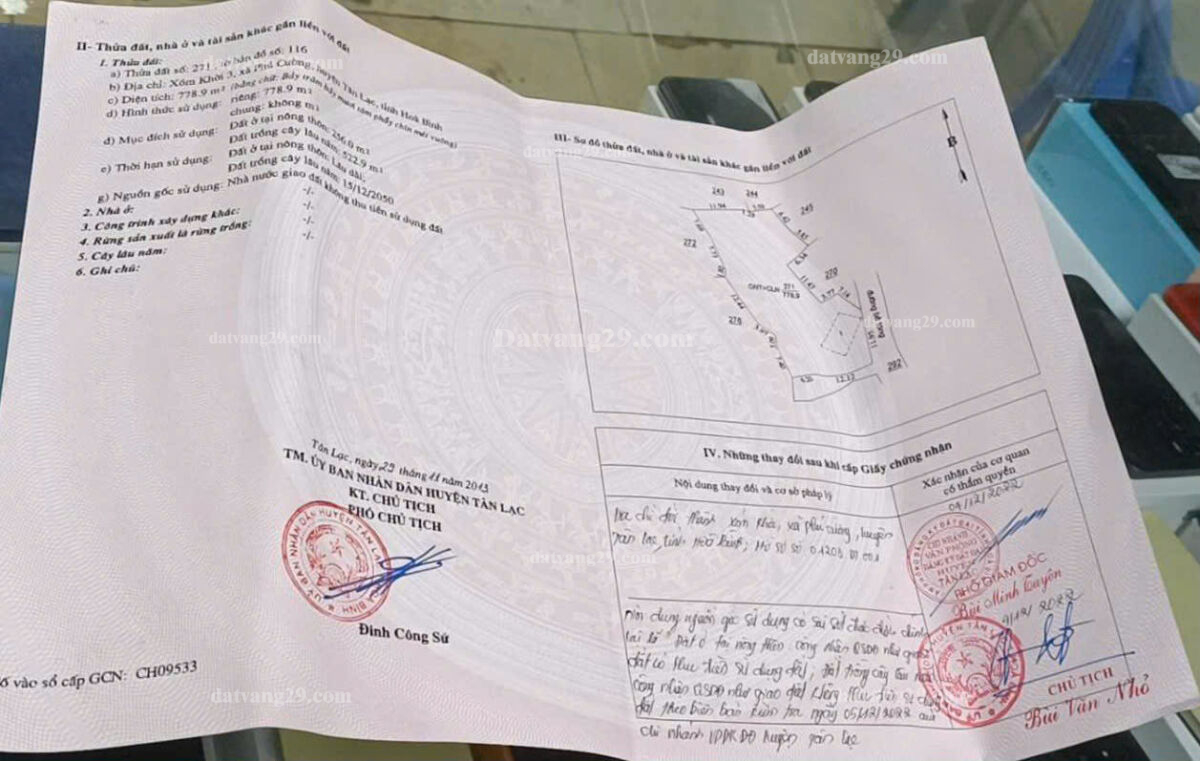 II- Thửa đất, nhà ở và tài sản khác gắn liền với đất
1. Thửa đất:
a) Thửa đất số: 271, tờ bản đồ số: 116
b) Địa chỉ: Xóm Khời 3, xã Phú Cường, huyện Tân Lạc, tỉnh Hoà Bình
c) Diện tích: 778.9 m² (bằng chữ: Bảy trăm bảy mươi tám phẩy chín mét vuông)
d) Hình thức sử dụng: riêng: 778.9 m²
chung: không m²
đ) Mục đích sử dụng: Đất ở tại nông thôn: 256.0 m²
Đất trồng cây lâu năm: 522.9 m²
e) Thời hạn sử dụng: Đất ở tại nông thôn: Lâu dài;
Đất trồng cây lâu năm: 15/12/2050
g) Nguồn gốc sử dụng: Nhà nước giao đất không thu tiền sử dụng đất
2. Nhà ở: -/-
3. Công trình xây dựng khác: -/-
4. Rừng sản xuất là rừng trồng: -/-
5. Cây lâu năm: -/-
6. Ghi chú:
Tân Lạc, ngày 29 tháng 11 năm 2013
TM. ỦY BAN NHÂN DÂN HUYỆN TÂN LẠC
KT. CHỦ TỊCH
PHÓ CHỦ TỊCH
Đinh Công Sứ
vào sổ cấp GCN: CH09533
III- Sơ đồ thửa đất, nhà ở và tài sản khác gắn liền với đất
B
243
244
245
11.94
272
270
ONT+CLN
271
778.9
7.14
đường bê tông
11.95
276
292
12.12
IV. Những thay đổi sau khi cấp Giấy chứng nhận
Nội dung thay đổi và cơ sở pháp lý
Xác nhận của cơ quan có thẩm quyền
xã Phú Cường, huyện
Tân Lạc, tỉnh Hoà Bình; Hồ sơ số
09/12/2022
PHÓ GIÁM ĐỐC
Bùi Minh Tuyên
Nội dung nguồn gốc sử dụng có sai sót được
lại là Đất ở tại nông thôn công nhận QSDĐ như giao
đất có thu tiền sử dụng đất, đất trồng cây lâu năm
công nhận QSDĐ như giao đất không thu tiền sử dụng
đất theo biên bản kiểm tra ngày 05/12/2022 của
chi nhánh VPĐKĐĐ huyện Tân Lạc
9/12/2022
CHỦ TỊCH
Bùi Văn Nhỏ
datvang29.com
datvang29.com
datvang29.com
Datvang29.com
datvang29.com
datvang29.com
datvang29.com